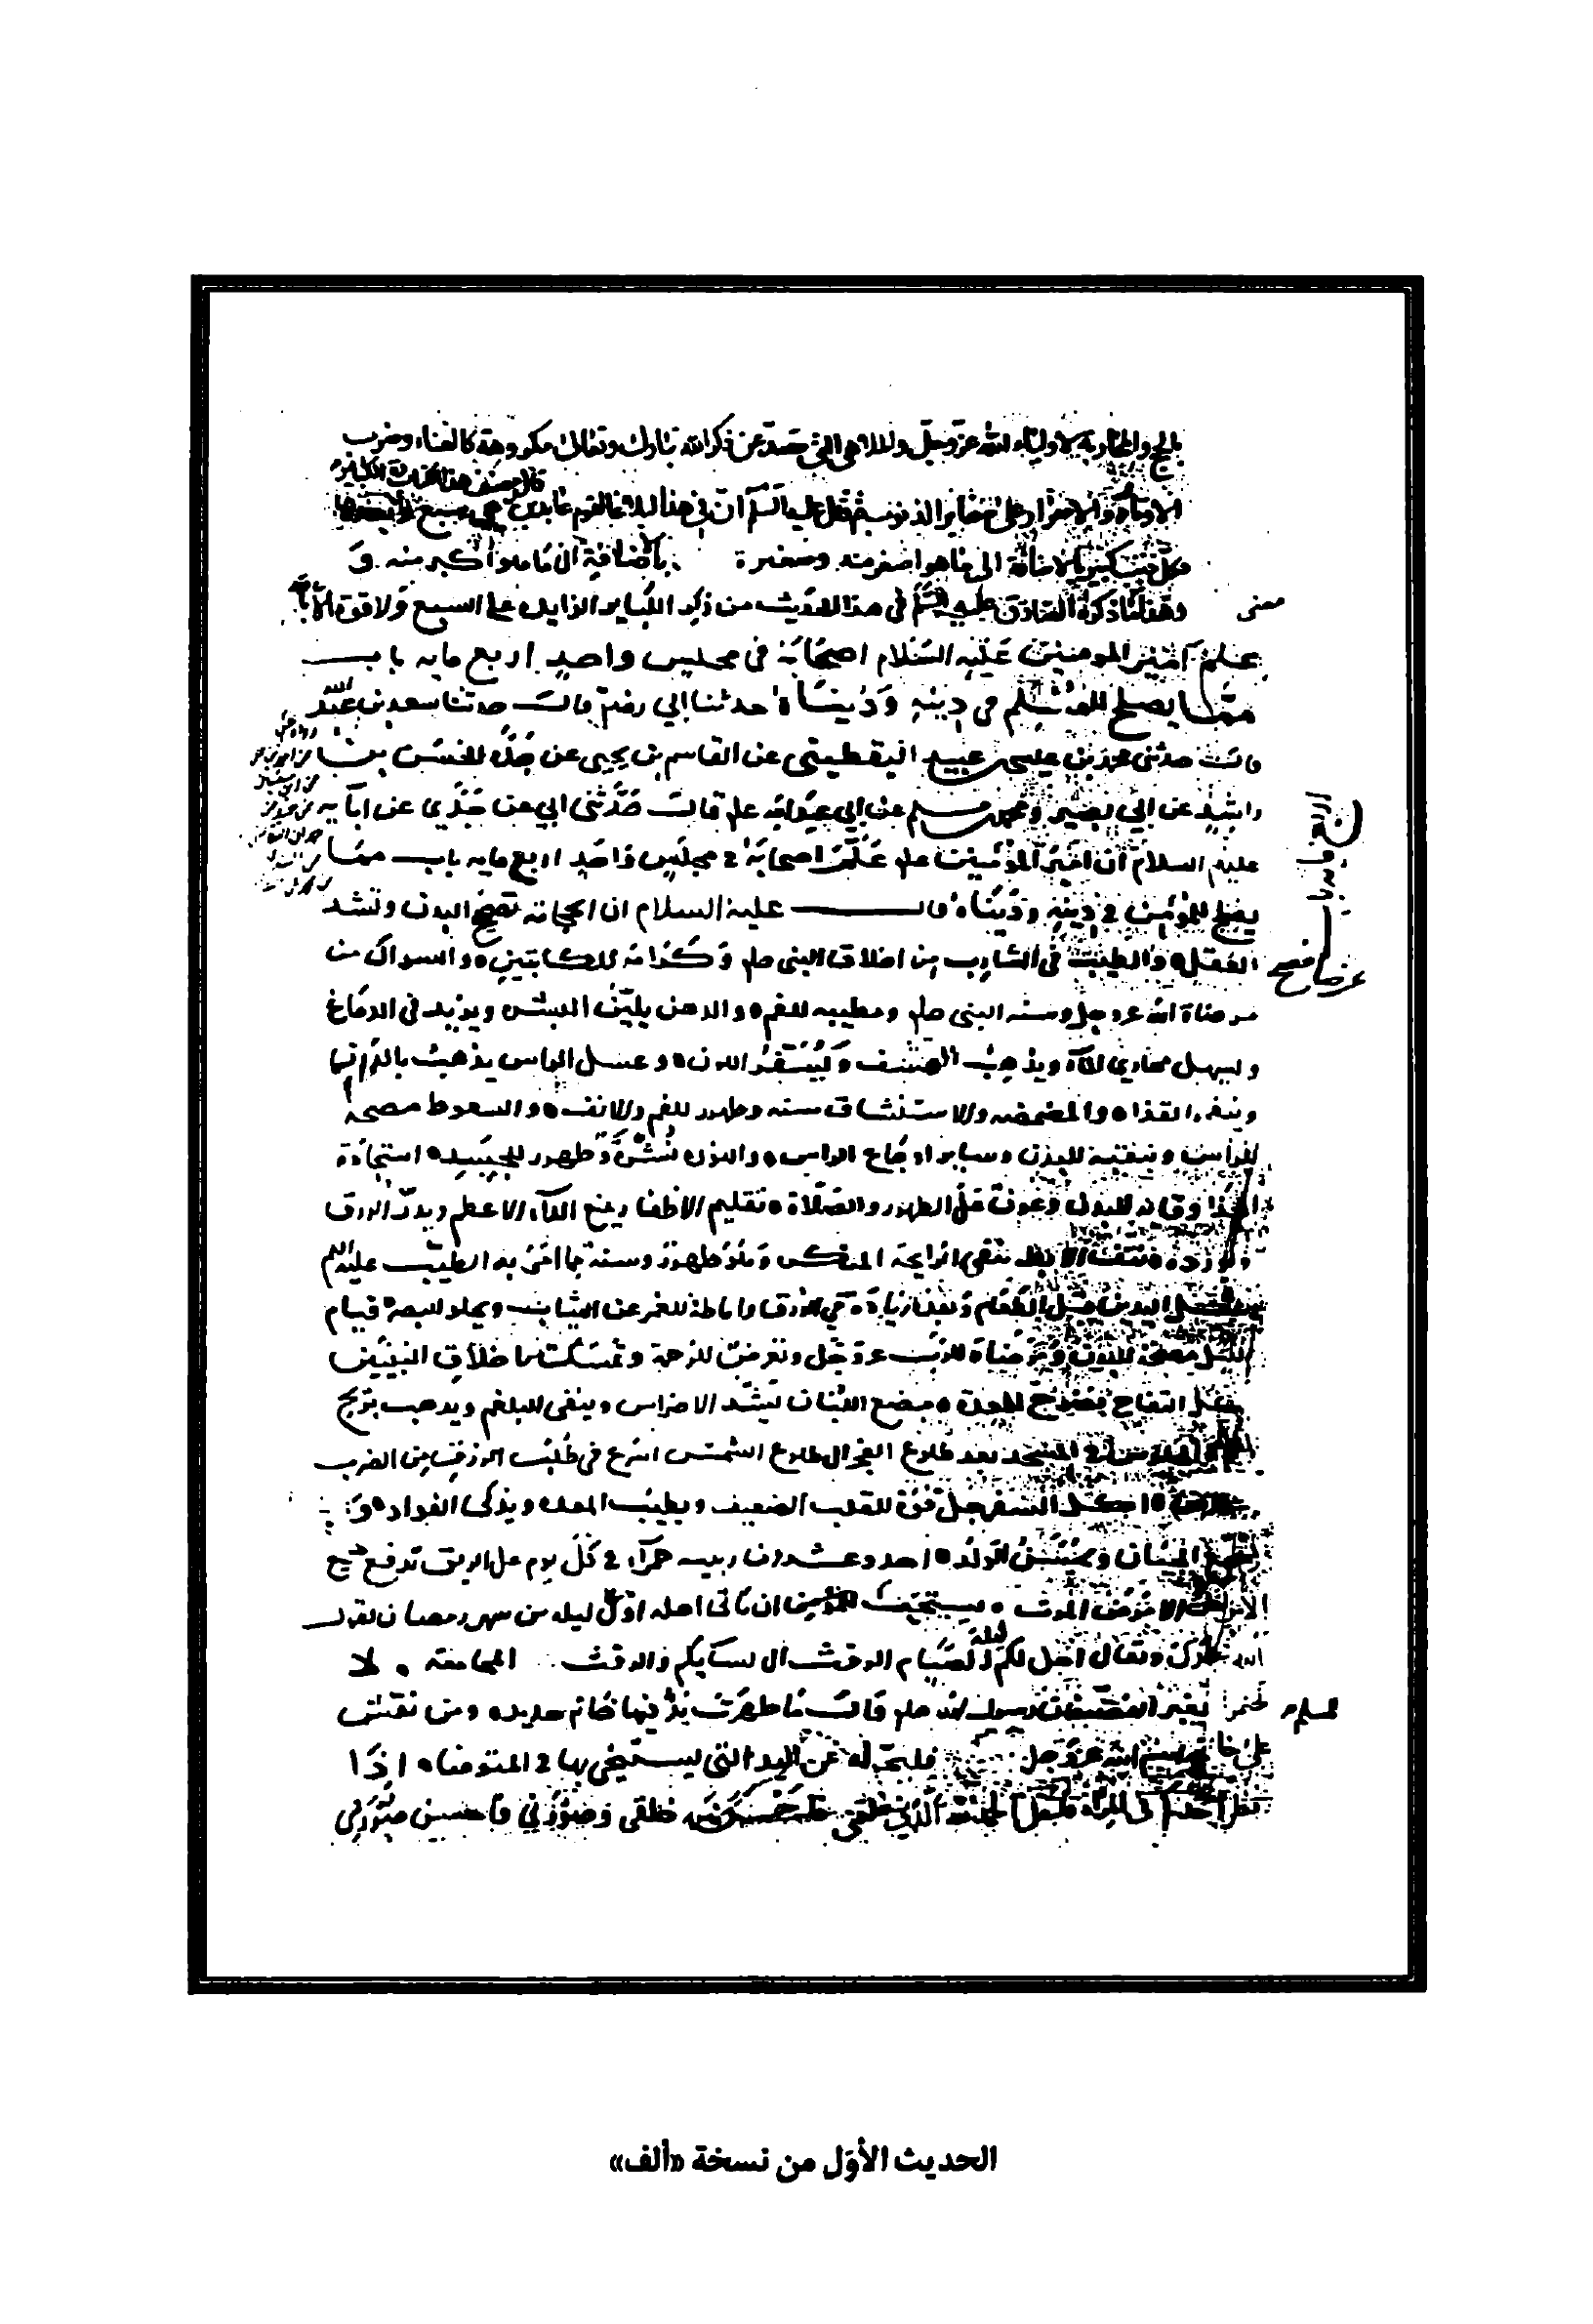 بالحج والمحاربة لاولياء الله عز وجل والملاهي التي تصد عن ذكر الله تبارك وتعالى مكروهة كالغناء وضرب
قال مصنف هذا الكتاب الكباير
الاوتار والاصرار على صغاير الذنوب ثم قال عليه السلم ان في هذا لبلاغا لقوم عابدين هي سبع
وكل ذنب كبير بالاضافة الى ما هو اصغر منه وصغيرة بالاضافة الى ما هو اكبر منه و
معنى
وهذا ما ذكره الصادق عليه السلم في هذا الحديث من ذكر الكباير الزايده على السبع ولا قوة الا بالله
علم امير المومنين عليه السلام اصحابه في مجلس واحد اربع مايه باب
مما يصلح للمسلم في دينه ودنياه حدثنا ابي رضي قال حدثنا سعد بن عبد الله
قال حدثني محمد بن عيسى بن عبيد اليقطيني عن القاسم بن يحيى عن جده الحسن بن
راشد عن ابي بصير ومحمد بن مسلم عن ابي عبد الله علم قال حدثني ابي عن جدي عن ابايه
عليهم السلام ان امير المؤمنين علم علم اصحابه في مجلس واحد اربع مايه باب مما
يصلح للمؤمن في دينه ودنياه قال عليه السلام ان الحجامة تصح البدن وتشد
العقل والطيب في الشارب من اخلاق النبي صلم وكرامة للكاتبين والسواك من
مرضاة الله عز وجل وسنه النبي صلم ومطيبه للفم والدهن يلين البشر ويزيد في الدماغ
ويسهل مجاري الماء ويذهب القشف ويسفر اللون وغسل الراس يذهب بالدرن
وينفي القذا والمضمضه والاستنشاق سنه وطهور للفم والانف والسعوط مصحة
للراس وتنقية للبدن وساير اوجاع الراس والنوره نشرة وطهور للجسد استجادة
الحذا وقايه للبدن وعون على الطهور والصلاة تقليم الاظفار يمنع الداء الاعظم ويدر الرزق
ويورده ونتف الابط ينفي الرايحة المنكره وهو طهور وسنة مما امر به الطيب عليه السلم
غسل اليدين قبل الطعام وبعده زيادة في الرزق واماطة للغمر عن الثياب ويجلو البصر قيام
الليل مصحة للبدن ومرضاة للرب عز وجل وتعرض للرحمة وتمسك باخلاق النبيين
اكل التفاح نضوح للمعدة مضغ اللبان يشد الاضراس وينفي البلغم ويذهب بريح
الفم الجلوس في المسجد بعد طلوع الفجر الى طلوع الشمس اسرع في طلب الرزق من الضرب
في الارض اكل السفرجل قوة للقلب الضعيف ويطيب المعده ويذكي الفواد و
يشجع الجبان ويحسن الولد احد وعشرون زبيبه حمراء في كل يوم على الريق تدفع جميع
الامراض الا مرض الموت يستحب للمسلم ان ياتي اهله اول ليله من شهر رمضان لقول
الله تبارك وتعالى احل لكم ليلة الصيام الرفث الى نسايكم والرفث المجامعة لا
تختموا بغير الفضة فان رسول الله صلم قال ما طهرت يد فيها خاتم حديد ومن نقش
على خاتمه اسم الله عز وجل فليحوله عن اليد التي يستنجي بها في المتوضا اذا
نظر احدكم في المراة فليقل الحمد لله الذي خلقني فاحسن خلقي وصورني فاحسن صورتي
الحديث الأوّل من نسخة «ألف»